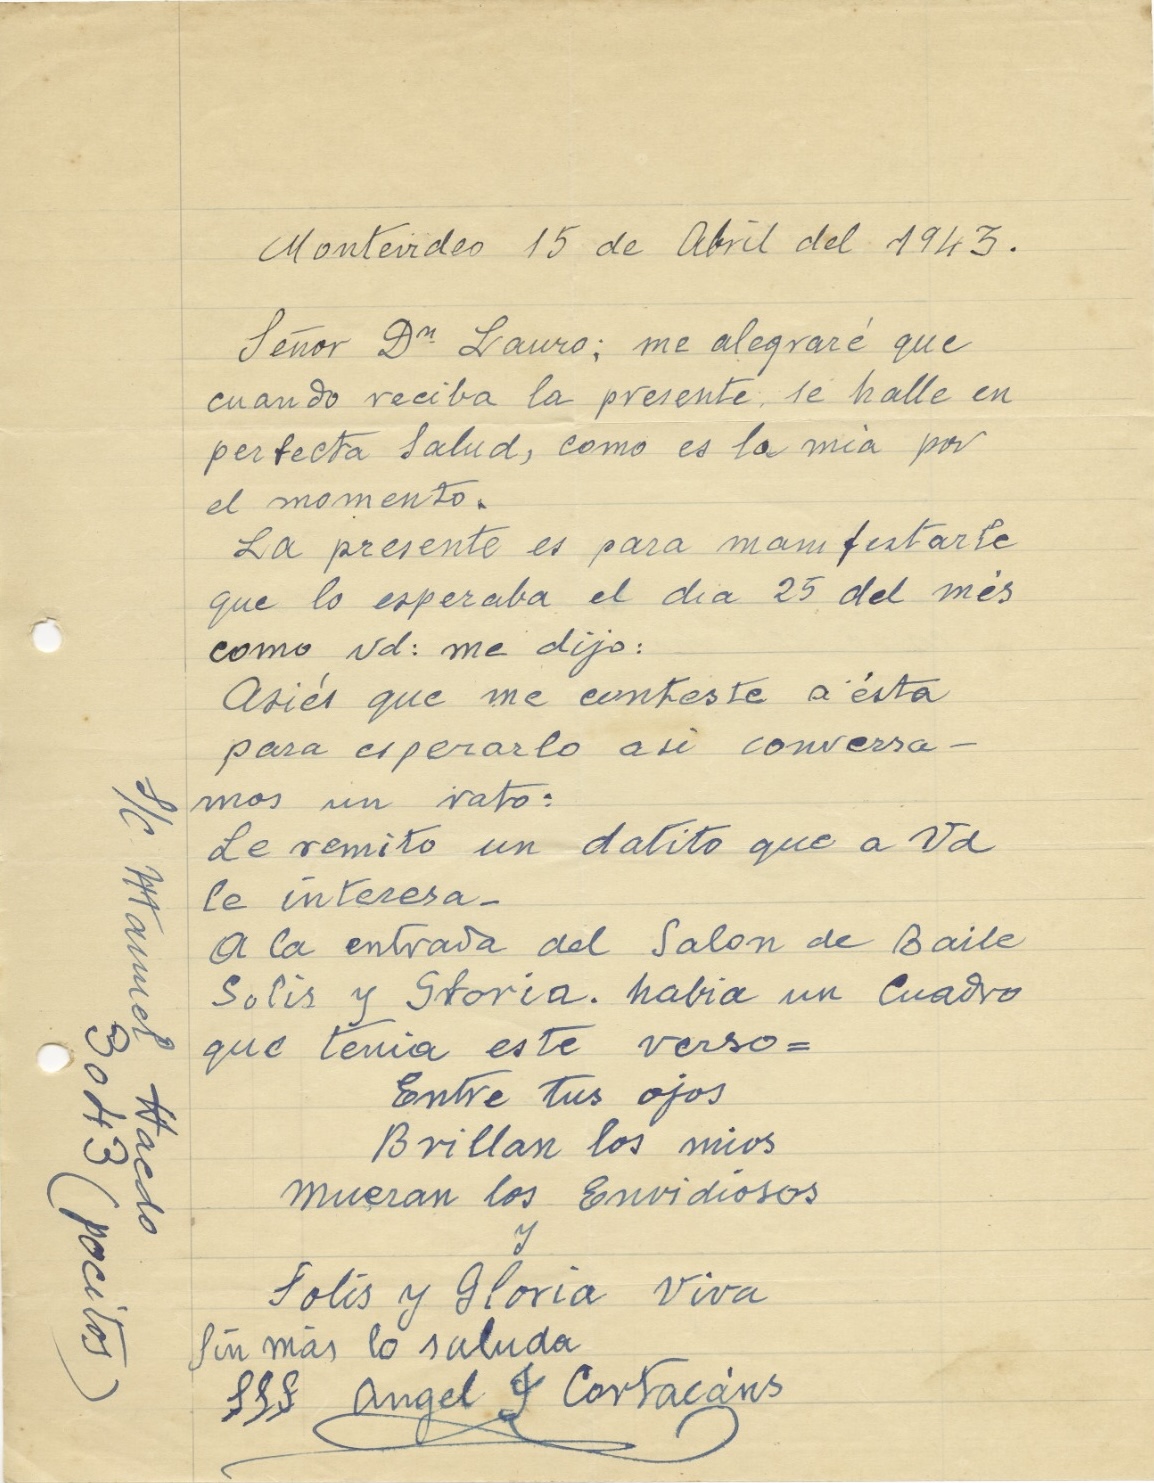 Montevideo 15 de Abril del 1943.
Señor Dn Lauro; me alegraré que
cuando reciba la presente, se halle en
perfecta Salud, como es la mia por
el momento.
La presente es para manifestarle
que lo esperaba el dia 25 del més
como Vd: me dijo:
Asiés que me conteste a ésta
para esperarlo asi conversa-
mos un rato:
Le remito un datito que a Vd
le interesa-
A la entrada del Salon de Baile
Solis y Gloria. habia un Cuadro
que tenia este verso=
Entre tus ojos
Brillan los mios
Mueran los Envidiosos
y
Solis y Gloria Viva
Sin más lo saluda
SSS Angel Cortacáns
S/c Manuel Haedo
3043 (pocitos)